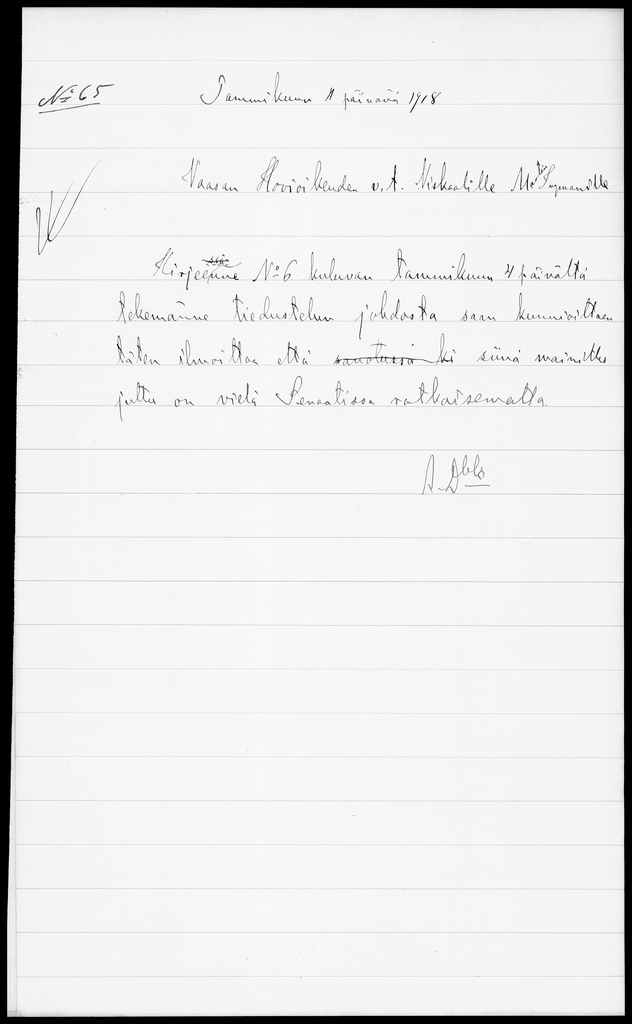 No 65
Tammikuun 11 päivänä 1918
Vaasan Hovioikeuden v.t. Viskaalille
Kirjeenne No 6 kuluvan tammikuun 4 päivältä
tekemänne tiedustelun johdosta saan kunnioittaen
täten ilmoittaa että siinä mainittu
juttu on vielä Senaatissa ratkaisematta.